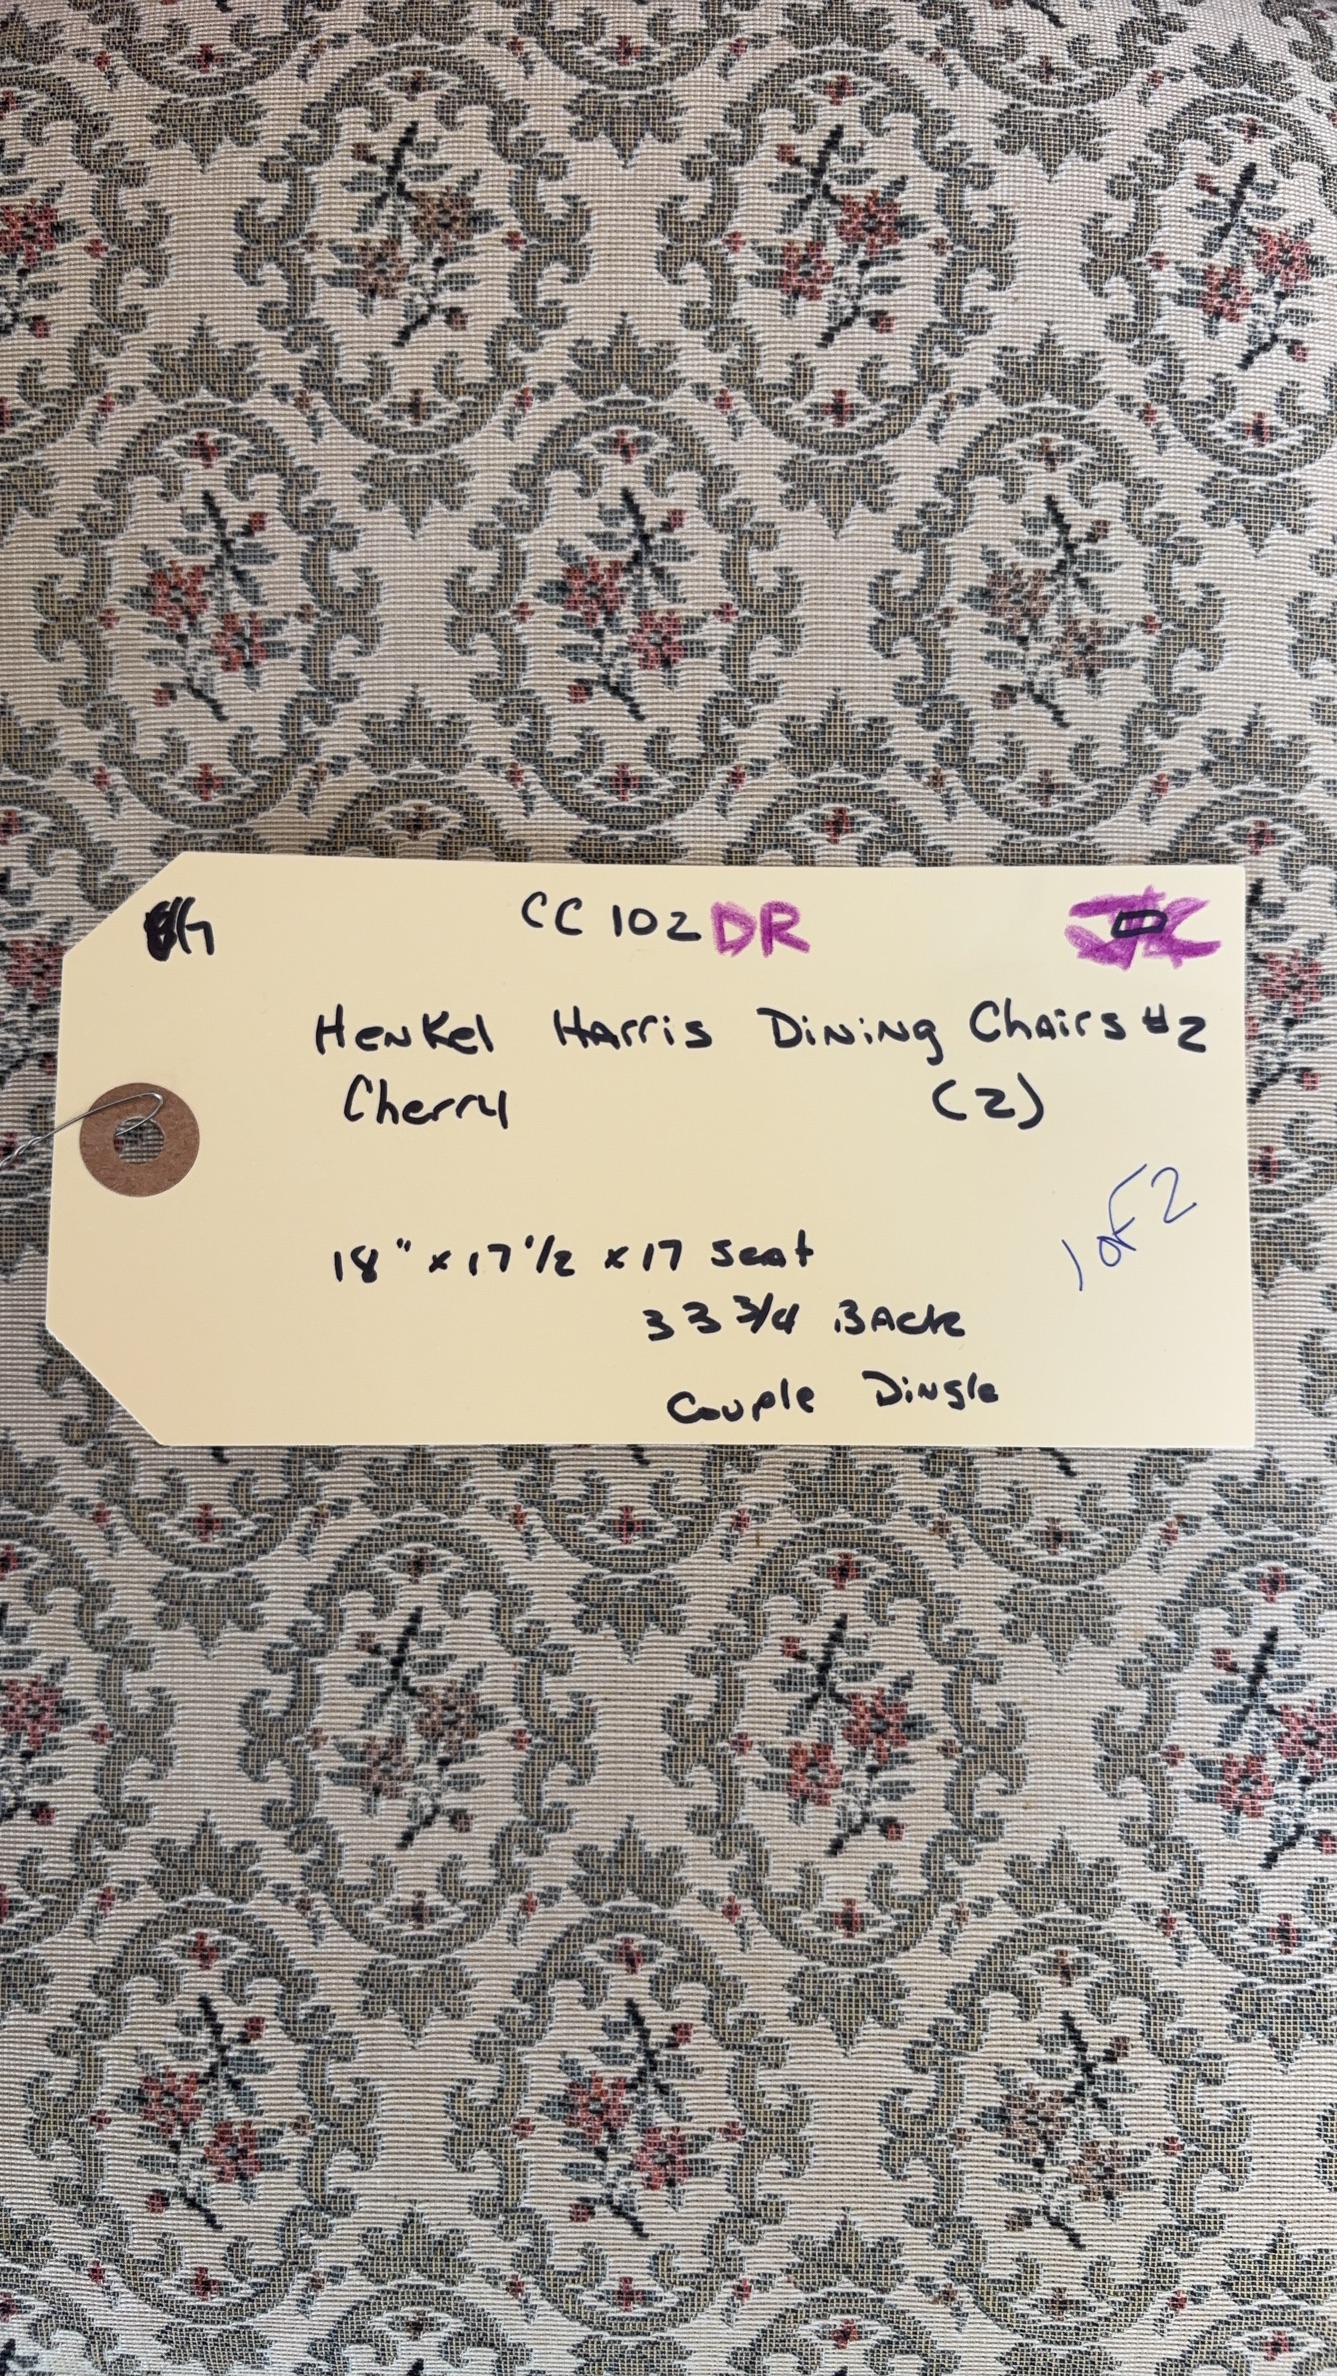 CC 102 DR
Henkel Harris Dining Chairs #2
Cherry (2)
1 of 2
18" x 17 1/2 x 17 Seat
33 3/4 BAck
Couple Dingle